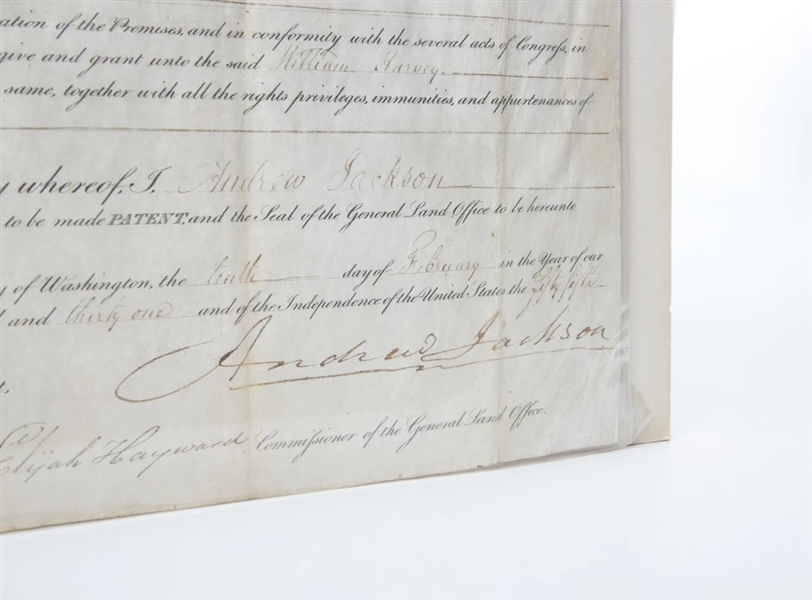 ation of the Premises, and in conformity with the several acts of Congress, in
give and grant unto the said William Harvey.
same, together with all the rights privileges, immunities, and appurtenances of
y whereof, I, Andrew Jackson
to be made PATENT, and the Seal of the General Land Office to be hereunto
y of Washington, the tenth day of February in the Year of our
d and thirty one and of the Independence of the United States the fifty fifth
Andrew Jackson
Elijah Hayward Commissioner of the General Land Office.